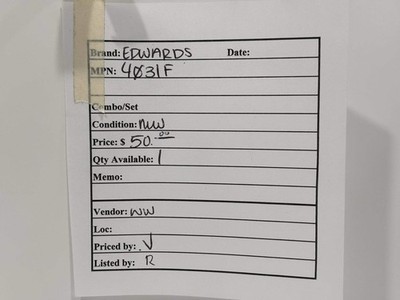 Brand: EDWARDS Date:
MPN: 4031F
Combo/Set
Condition: NW
Price: $ 50.00
Qty Available: 1
Memo:
Vendor: WW
Loc:
Priced by: J
Listed by: R